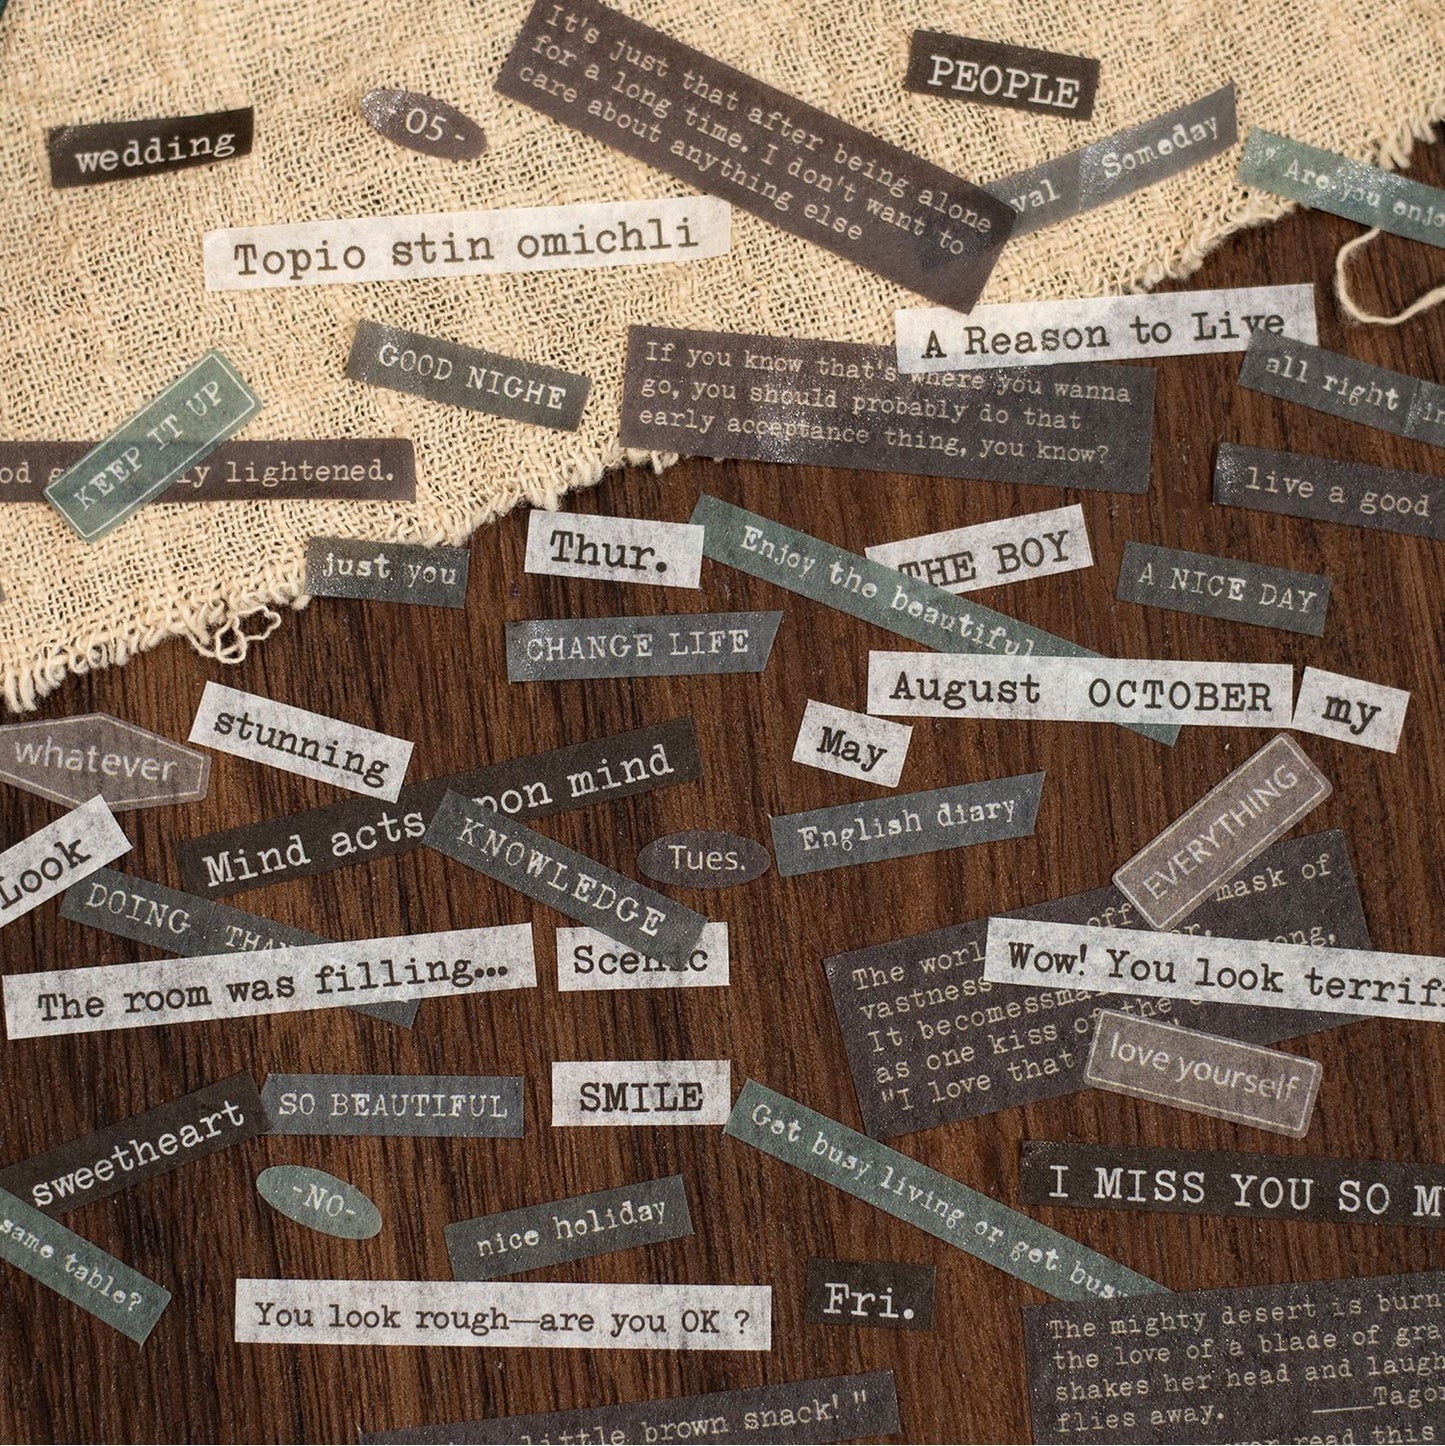 It's just that after being alone
for a long time. I don't want to
care about anything else
PEOPLE
wedding
05 -
Someday
"Are you enjo
Topio stin omichli
A Reason to Live
GOOD NIGHE
If you know that's where you wanna
go, you should probably do that
early acceptance thing, you know?
all right
KEEP IT UP
lightened.
live a good
just you
Thur.
Enjoy the beautiful
THE BOY
A NICE DAY
CHANGE LIFE
August
OCTOBER
my
stunning
May
whatever
Mind acts upon mind
EVERYTHING
Look
KNOWLEDGE
Tues.
English diary
DOING
The room was filling...
Scenic
mask of
The worl
vastness
It becomes
as one kiss of the
"I love that
Wow! You look terrif
love yourself
sweetheart
SO BEAUTIFUL
SMILE
Get busy living or get busy
I MISS YOU SO M
-NO-
nice holiday
same table?
You look rough—are you OK ?
Fri.
The mighty desert is burn
the love of a blade of gra
shakes her head and laugh
flies away. ____Tagor
read this
little brown snack! "